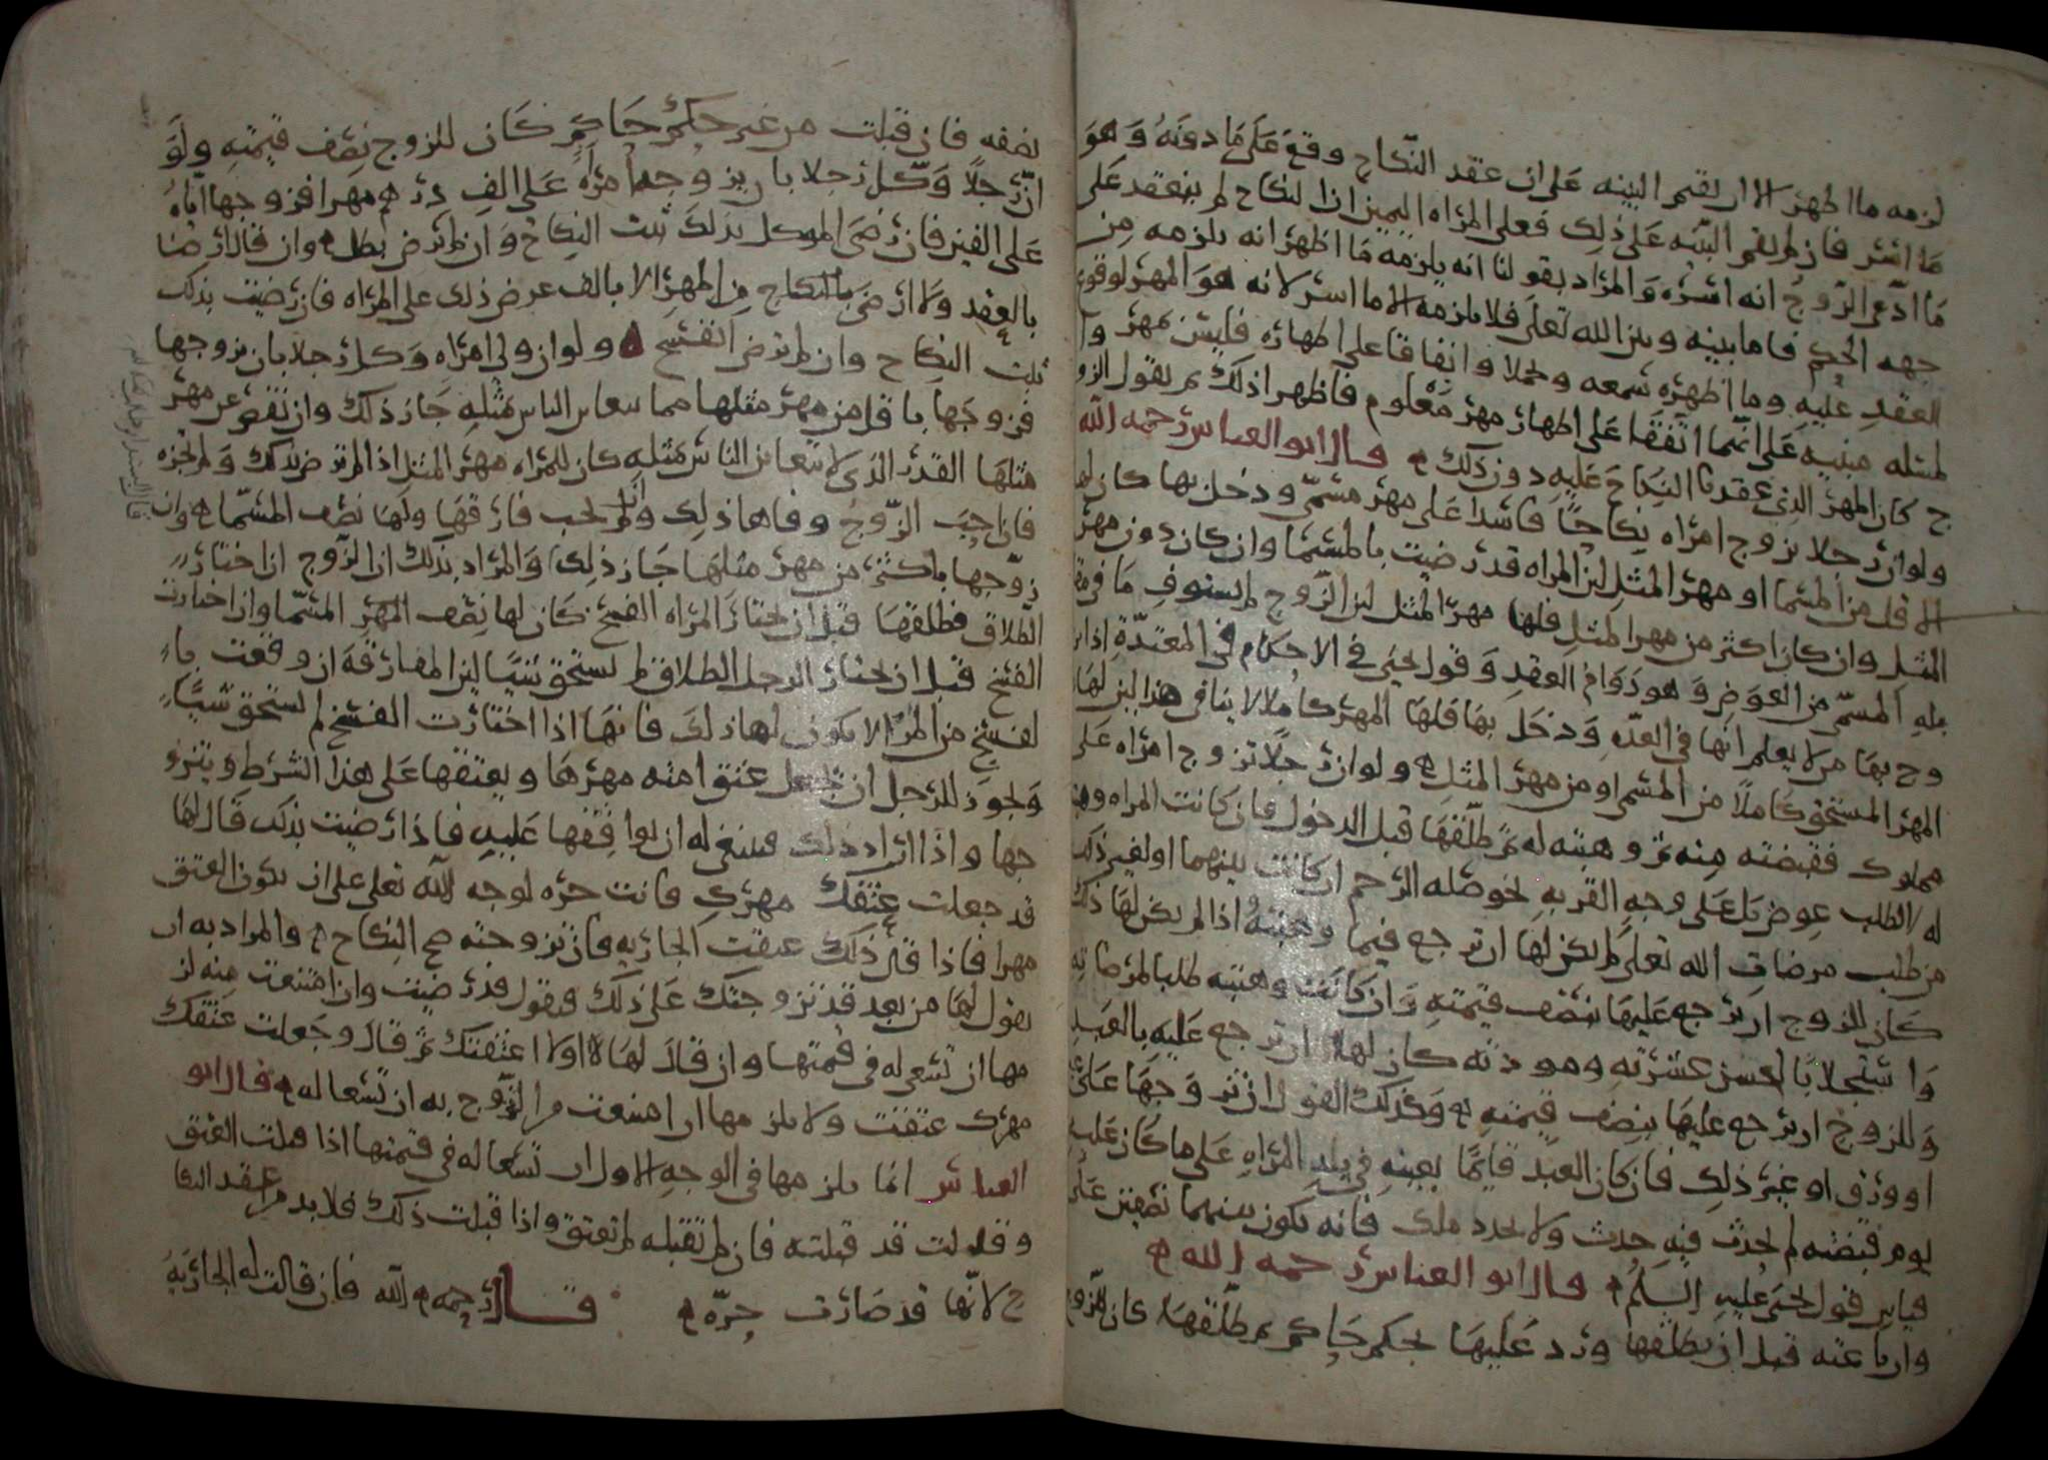 لزمه ما اظهر الا ان تقيم البينه على ان عقد النكاح وقع على ما دونه وهو
ما اسر فان لم تقم البينه على ذلك فعلى المراه اليمين ان النكاح لم ينعقد على
ما ادعى الزوج انه اسره والمراد بقولنا انه يلزمه ما اظهر انه يلزمه من
جهه الحكم فاما بينه وبين الله تعلى فلا يلزمه الا ما اسر لانه هو المهر لوقوع
العقد عليه وما اظهره سمعه واتفاقا على اظهاره فليس بمهر
لمثله مبنيه على انهما اتفقا على اظهار مهر معلوم فاظهرا ذلك ثم يقول الزو
ج كان المهر الذي عقدنا النكاح عليه دون ذلك ه قال ابو العباس رحمه الله
ولو ان رجلا تزوج امراه نكاحا فاسدا على مهر مسمى ودخل بها كان لها
الاقل من المسما او مهر المثل لان المراه قد رضيت بالمسما وان كان دون مهر
المثل وان كان اكثر من مهر المثل فلها مهر المثل لان الزوج لم يستوف ما في مقا
بله المسمى من العوض وهو دوام العقد وقول يحيى في الاحكام في المعتدة اذا تز
وج بها من لا يعلم انها في العده ودخل بها فلها المهر كاملا لا ينافي هذا لان لها
المهر المستحق كاملا من المسمى او من مهر المثل ه ولو ان رجلا تزوج امراه على
مملوك فقبضته منه ثم وهبته له ثم طلقها قبل الدخول فان كانت المراه وهبته
له لا لطلب عوض بل على وجه القربه نحو صله الرحم ان كانت بينهما او لغير ذلك
من طلب مرضات الله تعلى لم يكن لها ان ترجع فيما وهبته اذا لم يكن لها ذلك
كان للزوج ان يرجع عليها بنصف قيمته وان كانت وهبته طلبا لمرضاته
واستجلابا لحسن عشرته ومودته كان لها ان ترجع عليه بالعبد
وللزوج ان يرجع عليها بنصف قيمته ه وكذلك القول ان تزوجها على
او ورق او غير ذلك فان كان العبد قايما بعينه في يد المراه على ما كان عليه
يوم قبضته لم يحدث فيه حدث ولا تجدد ملك فانه يكون بينهما نصفين على
قياس قول يحيى عليه السلم ه قال ابو العباس رحمه الله ه
وان باعته قبل ان يطلقها ورد عليها بحكم حاكم ثم طلقها كان للزوج
نصفه فان قبلت من غير حكم حاكم كان للزوج نصف قيمته ولو
ان رجلا وكل رجلا بان يزوجه امراه على الف درهم مهرا فزوجها اياه
على الفين فان رضى الموكل بذلك ثبت النكاح وان لم يرض بطل ه وان قال ارضا
بالعقد ولا ارضى بالنكاح من المهر الا بالف عرض ذلك على المراه فان رضيت بذلك
ثبت النكاح وان لم ترض انفسخ ه ولو ان ولي امراه وكل رجلا بان يزوجها
فزوجها باقل من مهر مثلها مما يتغابن الناس بمثله جاز ذلك وان نقص عن مهر
مثلها القدر الذي لا يتغابن الناس بمثله كان للمراه مهر المثل اذا لم ترض بذلك ولم تجزه
فان احب الزوج وفاها ذلك وان لم يحب فارقها ولها نصف المسما ه وان
زوجها باكثر من مهر مثلها جاز ذلك والمراد بذلك ان الزوج ان اختار
الطلاق فطلقها قبل ان تختار المراه الفسخ كان لها نصف المهر المسما وان اختارت
الفسخ قبل ان يختار الرجل الطلاق لم تستحق شيا لان المفارقه ان وقعت با
لفسخ من المراه لا يكون لها ذلك فانها اذا اختارت الفسخ لم تستحق شيا
ويجوز للرجل ان يجعل عتق امته مهرها ويعتقها على هذا الشرط ويتزو
جها واذا اراد ذلك فينبغي له ان يوافقها عليه فاذا رضيت بذلك قال لها
قد جعلت عتقك مهرك فانت حره لوجه الله تعلى على ان يكون العتق
مهرا فاذا قال ذلك عتقت الجاريه فان تزوجته صح النكاح ه والمراد به ان
يقول لها من بعد قد تزوجتك على ذلك فتقول قد رضيت وان امتنعت منه لز
مها ان تسعى له في قيمتها وان قال لها اولا اعتقتك ثم قال وجعلت عتقك
مهرك عتقت ولا يلزمها ان امتنعت من التزوج به ان تسعا له ه قال ابو
العباس انما يلزمها في الوجه الاول ان تسعا له في قيمتها اذا قبلت العتق
وقالت قد قبلته فان لم تقبله لم تعتق واذا قبلت ذلك فلا بد من عقد النكا
ح لانها قد صارت حره ه قال رحمه الله فان قالت له الجاريه